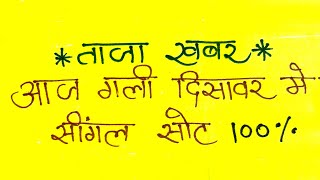 *ताजा खबर*
आज गली दिसावर मे
सींगल सोट 100%